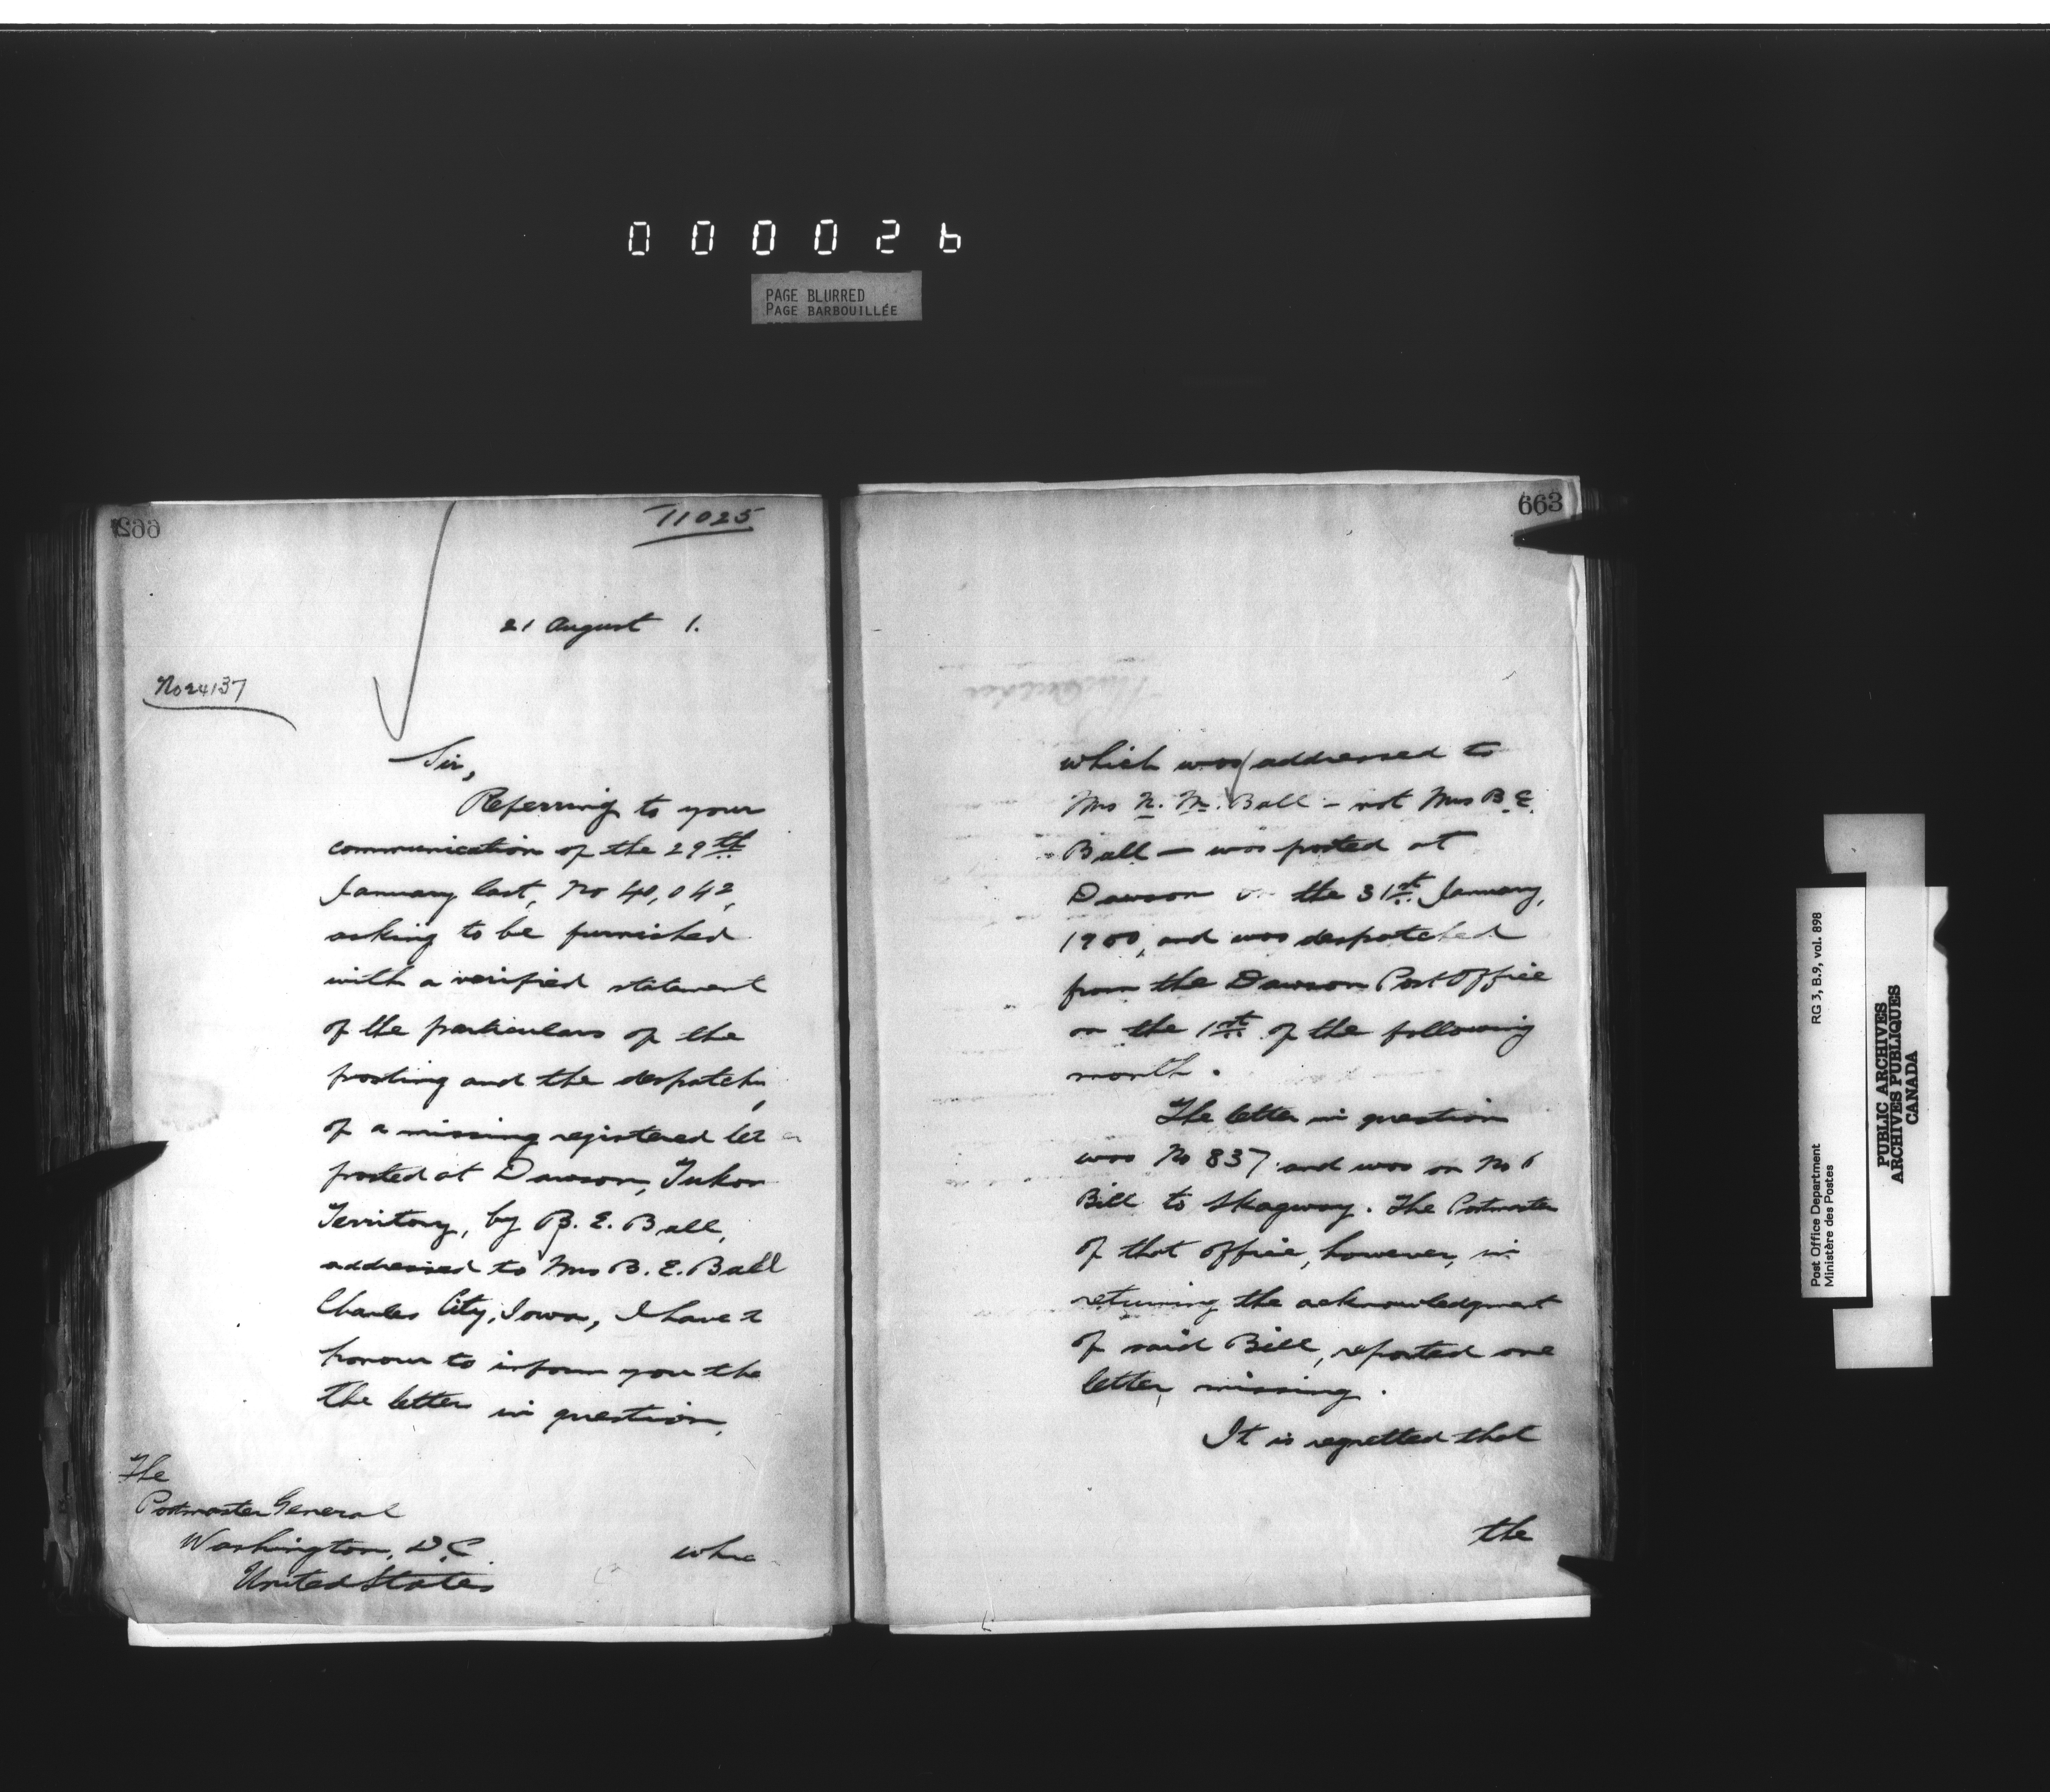 000026
PAGE BLURRED
PAGE BARBOUILLÉE
662
11025
21 August 1.
No 24137
Sir,
Referring to your
communication of the 29th
January last, No 40,042,
asking to be furnished
with a verified statement
of the particulars of the
posting and the despatch
of a missing registered let
posted at Dawson, Yukon
Territory, by B. E. Ball,
addressed to Mrs B. E. Ball
Charles City, Iowa, I have t
honour to inform you tha
the letter in question,
The
Postmaster General
Washington, D.C
United States
whic
663
which was addressed to
Mrs N. M. Ball – not Mrs B. E.
Ball – was posted at
Dawson on the 31st January,
1900, and was despatched
from the Dawson Post Office
on the 1st of the following
month.
The letter in question
was No 837 and was on No 6
Bill to Skagway. The Postmaster
of that office, however, in
returning the acknowledgment
of said Bill, reported one
letter missing.
It is regretted that
the
Post Office Department
Ministère des Postes
RG 3, B.9, vol. 898
PUBLIC ARCHIVES
ARCHIVES PUBLIQUES
CANADA